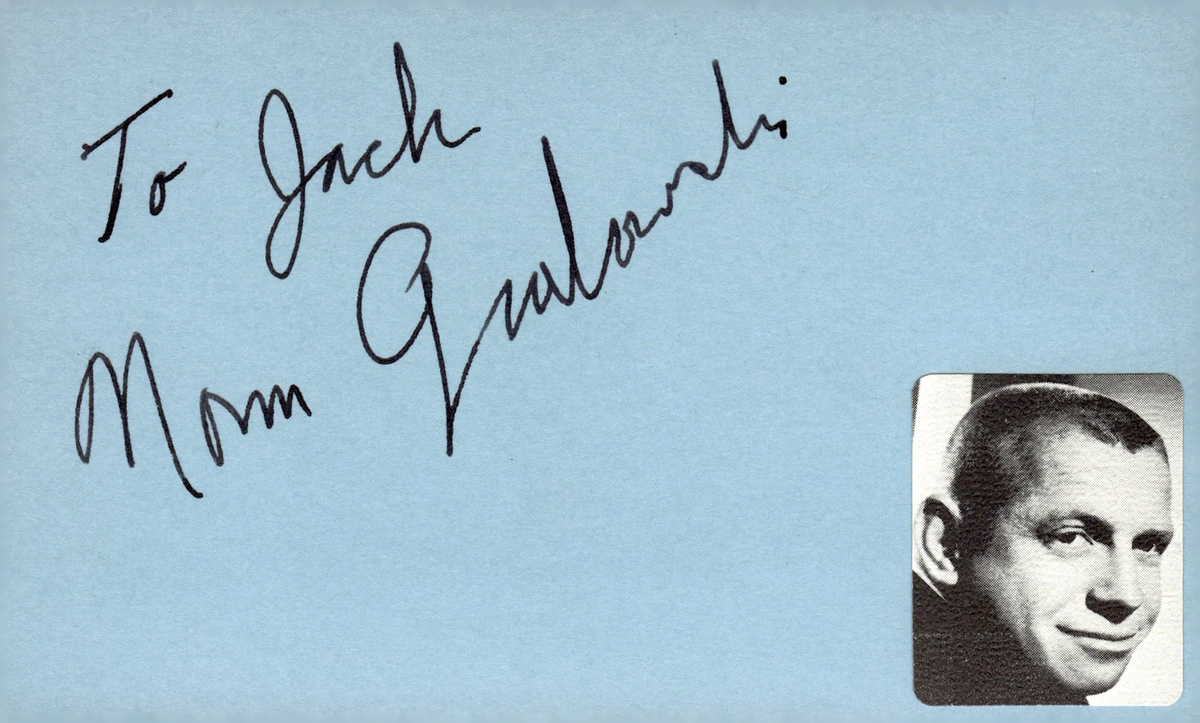 To Jack
Norm Grabowski